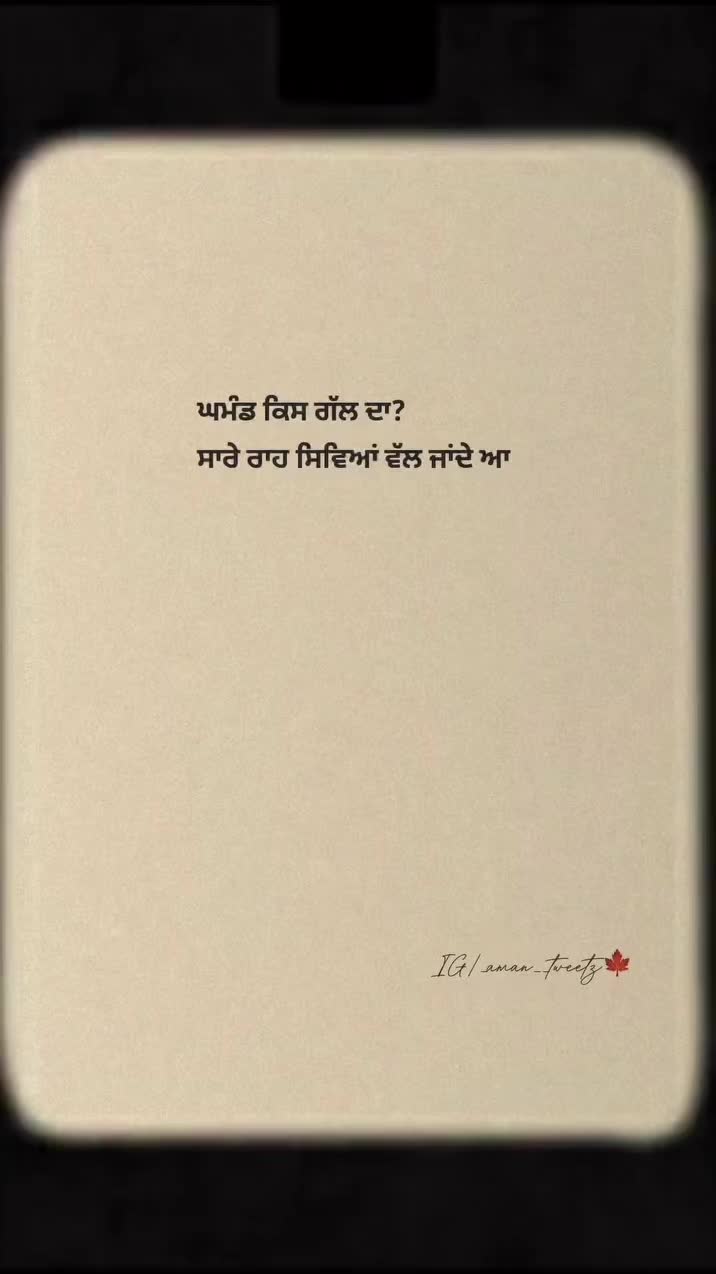 ਘਮੰਡ ਕਿਸ ਗੱਲ ਦਾ?
ਸਾਰੇ ਰਾਹ ਸਿਵਿਆਂ ਵੱਲ ਜਾਂਦੇ ਆ
IG/_aman_tweetz